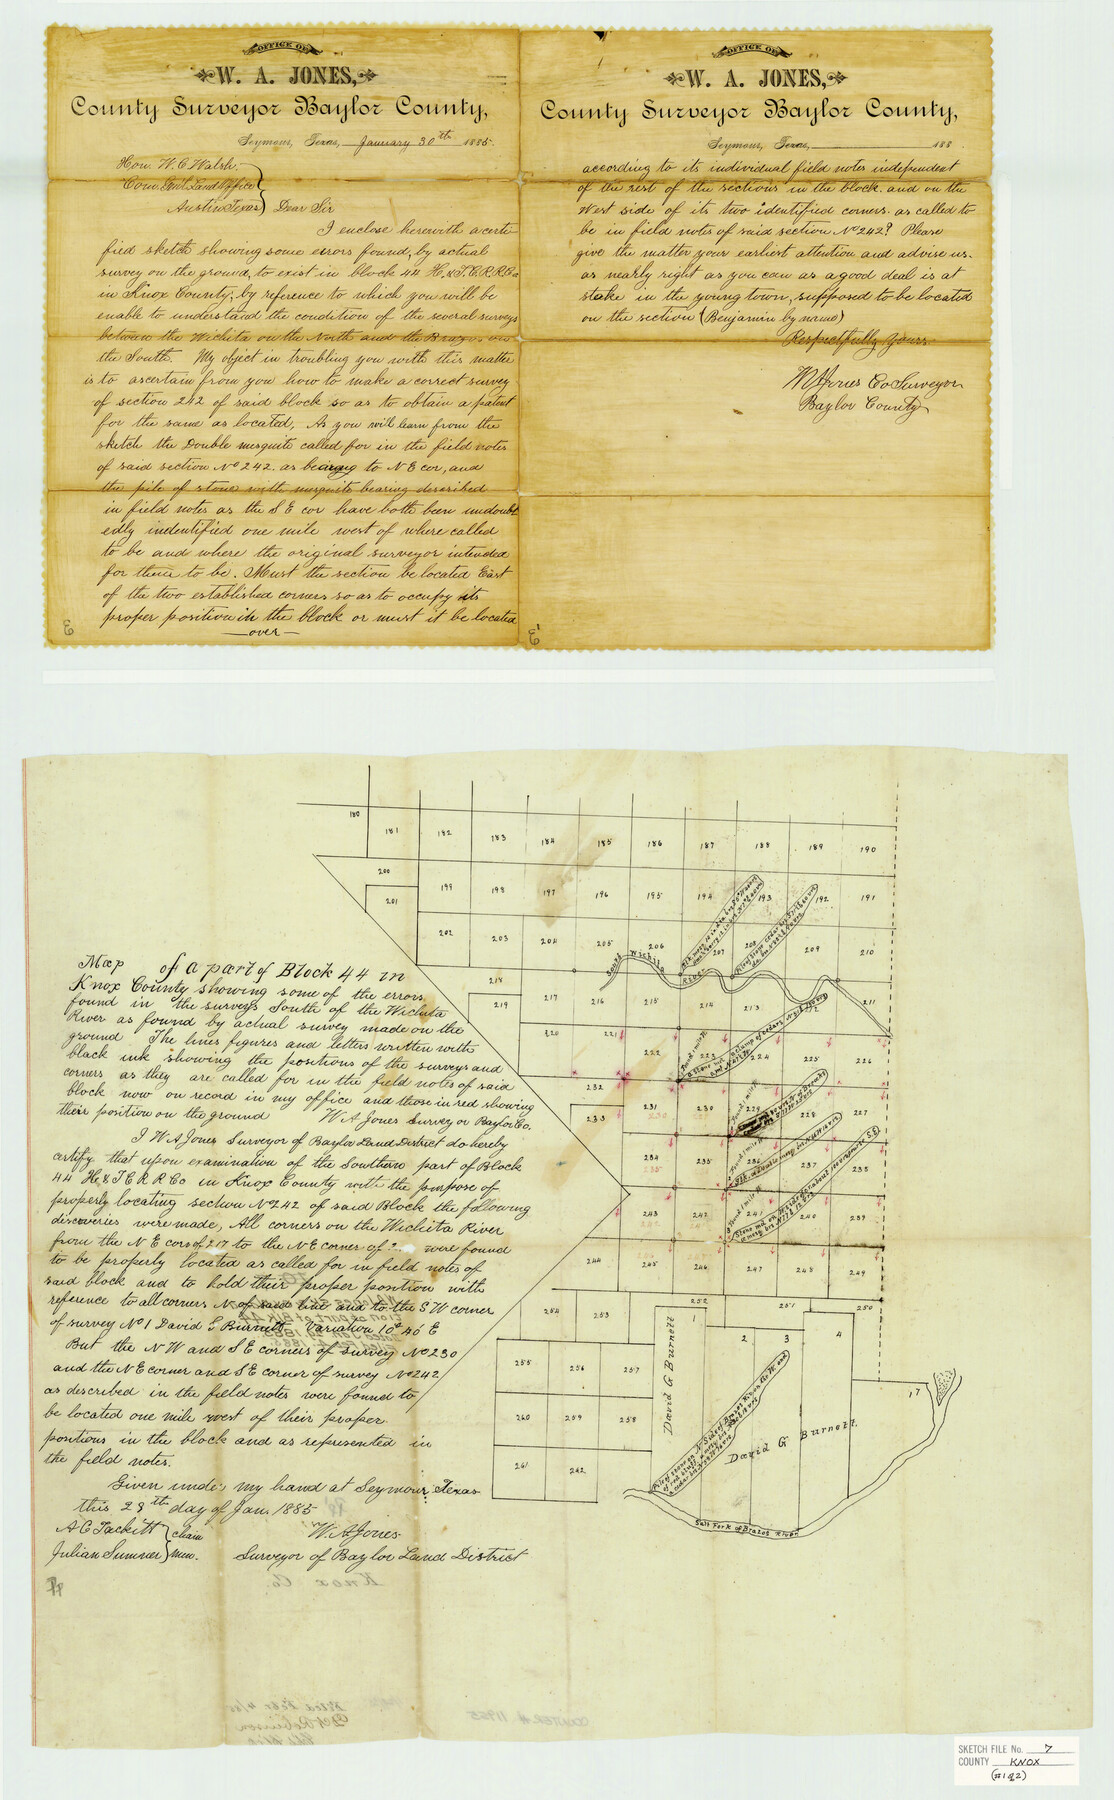 OFFICE OF
W. A. JONES,
County Surveyor Baylor County,
Seymour, Texas, January 30th 1885.
Hon. W. C. Walsh
Com. Genl Land Office
Austin Texas Dear Sir
I enclose herewith a certi-
fied sketch showing some errors found, by actual
survey on the ground, to exist in block 44 H. & T. C. R. R. Co
in Knox County; by reference to which you will be
enable to understand the condition of the several surveys
between the Wichita on the North and the Brazos on
the South. My object in troubling you with this matter
is to ascertain from you how to make a correct survey
of section 242 of said block so as to obtain a patent
for the same as located, As you will learn from the
sketch the Double mesquite called for in the field notes
of said section No 242. as bearing to N E cor, and
the pile of stone with mesquite bearing described
in field notes as the S E cor have both been undoubt
edly indentified one mile west of where called
to be and where the original surveyor intended
for them to be. Must the section be located East
of the two established corners so as to occupy its
proper position in the block or must it be located
—over—
3
OFFICE OF
W. A. JONES,
County Surveyor Baylor County,
Seymour, Texas, 188
according to its individual field notes independent
of the rest of the sections in the block. and on the
West side of its two identified corners. as called to
be in field notes of said section No 242? Please
give the matter your earliest attention and advise us.
as nearly right as you can as a good deal is at
stake in the young town, supposed to be located
on the section (Benjamin by name)
Respectfully Yours
W A Jones Co Surveyor
Baylor County
3
180
181 182 183 184 185 186 187 188 189 190
200
201
199 198 197 196 195 194 193 192 191
202 203 204 205 206 207 208 209 210
South Wichita River
218
219
217 216 215 214 213 212 211
220 221 222 223 224 225 226
232 231 230 229 228 227
233
234 235 236 237 238
243 242 241 240 239
244 245 246 247 248 249
254 253 252 251 250
255 256 257
260 259 258
261 242
1 2 3 4
17
David G Burnett
David G Burnett
Salt Fork of Brazos River
Found 1 mile W
Found 1 mile W
Found 1 mile W
Found 1 mile W
Map of a part of Block 44 in
Knox County showing some of the errors
found in the surveys South of the Wichita
River as found by actual survey made on the
ground The lines figures and letters written with
black ink showing the positions of the surveys and
corners as they are called for in the field notes of said
block now on record in my office and those in red showing
their position on the ground W. A Jones Surveyor Baylor Co.
I W. A Jones Surveyor of Baylor Land District do hereby
certify that upon examination of the Southern part of Block
44 H. & T C R R Co in Knox County with the purpose of
properly locating section No 242 of said Block the following
discoveries were made, All corners on the Wichita River
from the N E cor of 217 to the N E corner of ? were found
to be properly located as called for in field notes of
said block and to hold their proper position with
reference to all corners N of said line and to the S W corner
of survey No 1 David G Burnett Variation 10° 40' E
But the N W and S E corners of survey No 230
and the N E corner and S E corner of survey No 242
as described in the field notes were found to
be located one mile west of their proper
positions in the block and as represented in
the field notes.
Given under my hand at Seymour Texas
this 29th day of Jan. 1885
A C Tackitt
Julian Sumner
chain
men.
W. A Jones
Surveyor of Baylor Land District
4
Knox Co.
COUNTER # 11955
SKETCH FILE No. 7
COUNTY KNOX
(#1&2)